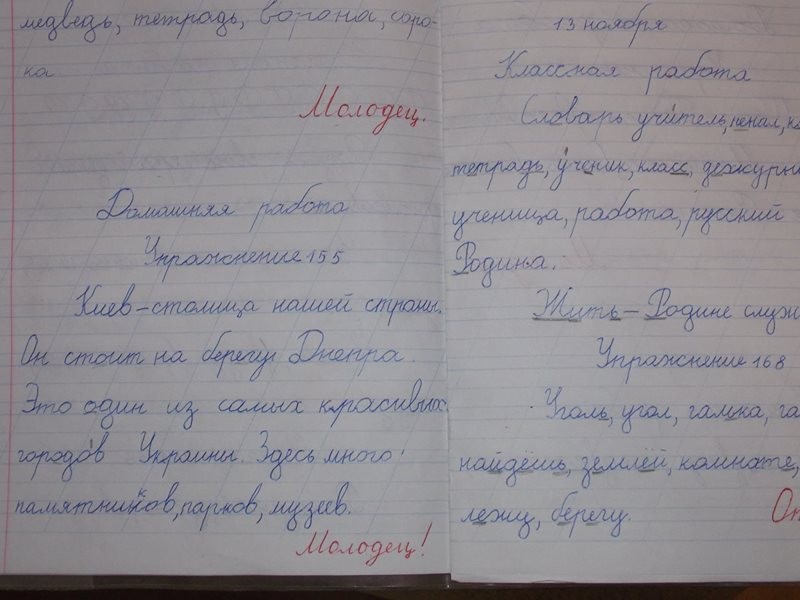 медведь, тетрадь, ворона, соро-
ка
Молодец.
Домашняя работа
Упражнение 155
Киев – столица нашей страны.
Он стоит на берегу Днепра.
Это один из самых красивых
городов Украины. Здесь много
памятников, парков, музеев.
Молодец!
13 ноября
Классная работа
Словарь учитель, пенал, к
тетрадь, ученик, класс, дежурн
ученица, работа, русский
Родина.
Жить – Родине служ
Упражнение 168
Уголь, угол, галька, га
найдёшь, землёй, комнате,
лежу, берегу.
От